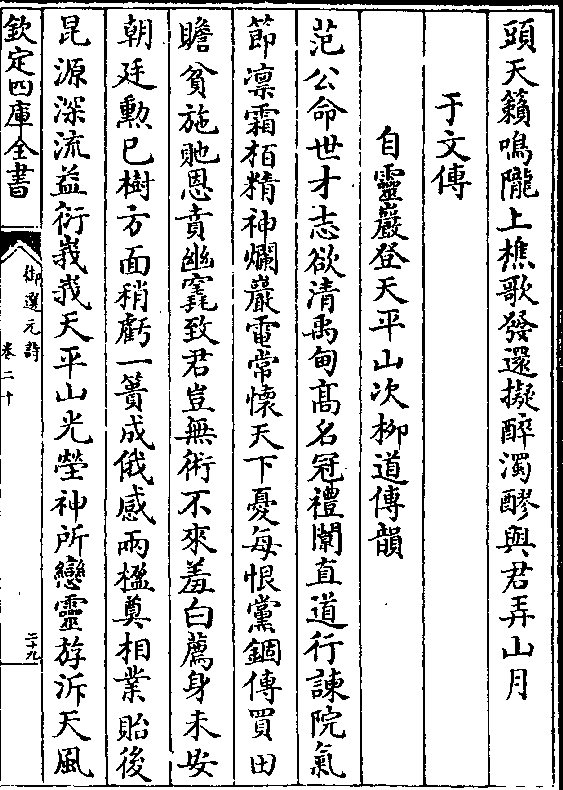 頭天籟鳴隴上樵歌發還擬醉濁醪與君弄山月
于文傳
自靈巖登天平山次柳道傳韻
范公命世才志欲清禹甸髙名冠禮闈直道行諫院氣
節凛霜栢精神爛巖電常懷天下憂每恨黨錮傳買田
贍貧施貤恩賁幽窀致君豈無術不來羞白薦身未安
朝廷勲已樹方面稍虧一簣成俄感兩楹奠相業貽後
昆源深流益衍峩峩天平山光瑩神所戀靈斿泝天風
欽定四庫全書
御選元詩
卷二十
二十九